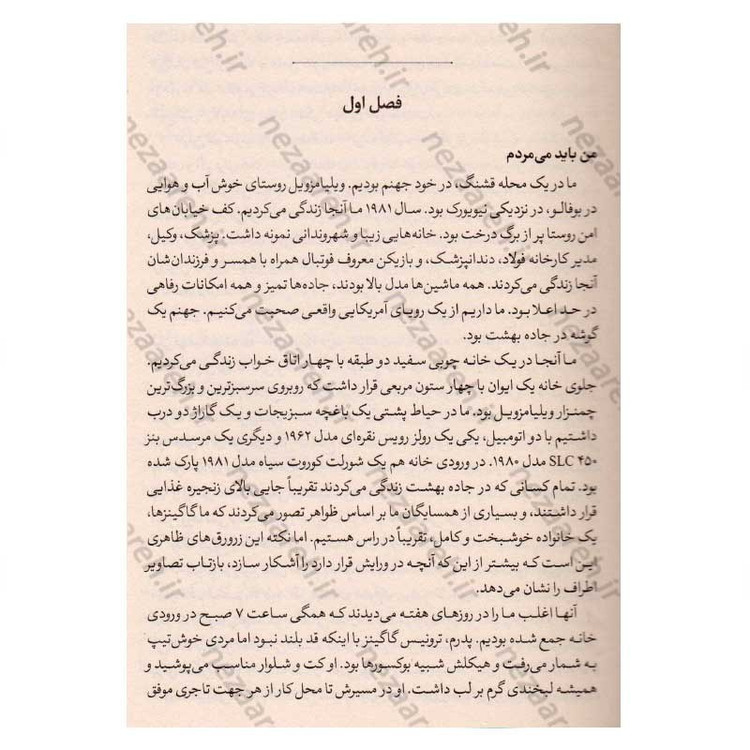 فصل اول
من باید می‌مردم
ما در یک محله قشنگ، در خود جهنم بودیم. ویلیامزویل روستای خوش آب و هوایی
در بوفالو، در نزدیکی نیویورک بود. سال ۱۹۸۱ ما آنجا زندگی می‌کردیم. کف خیابان‌های
امن روستا پر از برگ درخت بود. خانه‌هایی زیبا و شهروندانی نمونه داشت. پزشک، وکیل،
مدیر کارخانه فولاد، دندانپزشک، و بازیکن معروف فوتبال همراه با همسر و فرزندان‌شان
آنجا زندگی می‌کردند. همه ماشین‌ها مدل بالا بودند، جاده‌ها تمیز و همه امکانات رفاهی
در حد اعلا بود. ما داریم از یک رویای آمریکایی واقعی صحبت می‌کنیم. جهنم یک
گوشه در جاده بهشت بود.
ما آنجا در یک خانه چوبی سفید دو طبقه با چهار اتاق خواب زندگی می‌کردیم.
جلوی خانه یک ایوان با چهار ستون مربعی قرار داشت که روبروی سرسبزترین و بزرگ‌ترین
چمنزار ویلیامزویل بود. ما در حیاط پشتی یک باغچه سبزیجات و یک گاراژ دو درب
داشتیم با دو اتومبیل، یکی یک رولز رویس نقره‌ای مدل ۱۹۶۲ و دیگری یک مرسدس بنز
۴۵۰ SLC مدل ۱۹۸۰. در ورودی خانه هم یک شورلت کوروت سیاه مدل ۱۹۸۱ پارک شده
بود. تمام کسانی که در جاده بهشت زندگی می‌کردند تقریباً جایی بالای زنجیره غذایی
قرار داشتند، و بسیاری از همسایگان ما بر اساس ظواهر تصور می‌کردند که ما گاگینزها،
یک خانواده خوشبخت و کامل، تقریباً در راس هستیم. اما نکته این زرورق‌های ظاهری
این است که بیشتر از این که آنچه در ورایش قرار دارد را آشکار سازد، بازتاب تصاویر
اطراف را نشان می‌دهد.
آنها اغلب ما را در روزهای هفته می‌دیدند که همگی ساعت ۷ صبح در ورودی
خانه جمع شده بودیم. پدرم، ترونیس گاگینز با اینکه قد بلند نبود اما مردی خوش‌تیپ
به شمار می‌رفت و هیکلش شبیه بوکسورها بود. او کت و شلوار مناسب می‌پوشید و
همیشه لبخندی گرم بر لب داشت. او در مسیرش تا محل کار از هر جهت تاجری موفق
nezaareh.ir